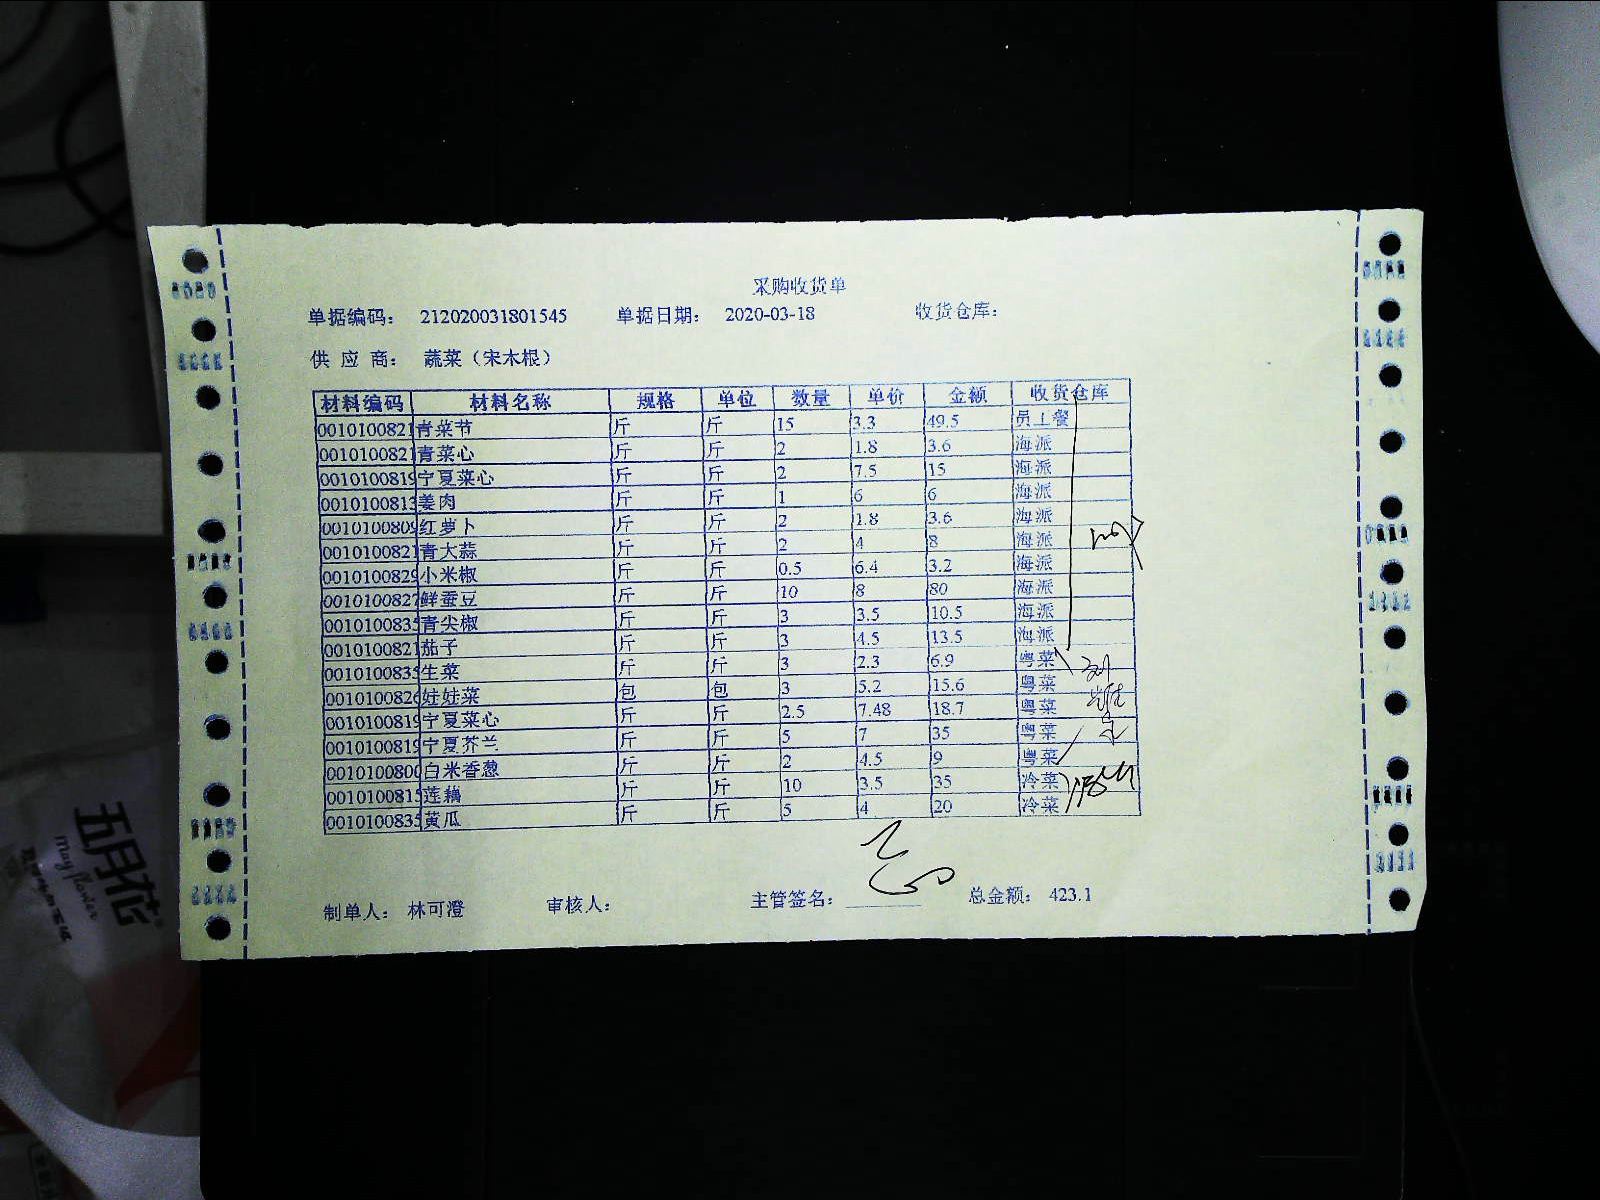 采购收货单
单据编码： 212020031801545 单据日期： 2020-03-18 收货仓库：
供 应 商： 蔬菜（宋木根）
材料编码 材料名称 规格 单位 数量 单价 金额 收货仓库
0010100821 青菜节 斤 斤 15 3.3 49.5 员工餐
0010100821 青菜心 斤 斤 2 1.8 3.6 海派
0010100819 宁夏菜心 斤 斤 2 7.5 15 海派
0010100813 姜肉 斤 斤 1 6 6 海派
0010100809 红萝卜 斤 斤 2 1.8 3.6 海派
0010100821 青大蒜 斤 斤 2 4 8 海派
0010100829 小米椒 斤 斤 0.5 6.4 3.2 海派
0010100827 鲜蚕豆 斤 斤 10 8 80 海派
0010100835 青尖椒 斤 斤 3 3.5 10.5 海派
0010100821 茄子 斤 斤 3 4.5 13.5 海派
0010100835 生菜 斤 斤 3 2.3 6.9 粤菜
0010100826 娃娃菜 包 包 3 5.2 15.6 粤菜
0010100819 宁夏菜心 斤 斤 2.5 7.48 18.7 粤菜
0010100819 宁夏芥兰 斤 斤 5 7 35 粤菜
0010100800 白米香葱 斤 斤 2 4.5 9 粤菜
0010100815 莲藕 斤 斤 10 3.5 35 冷菜
0010100835 黄瓜 斤 斤 5 4 20 冷菜
制单人： 林可澄 审核人： 主管签名： 总金额： 423.1
五月花
May flower